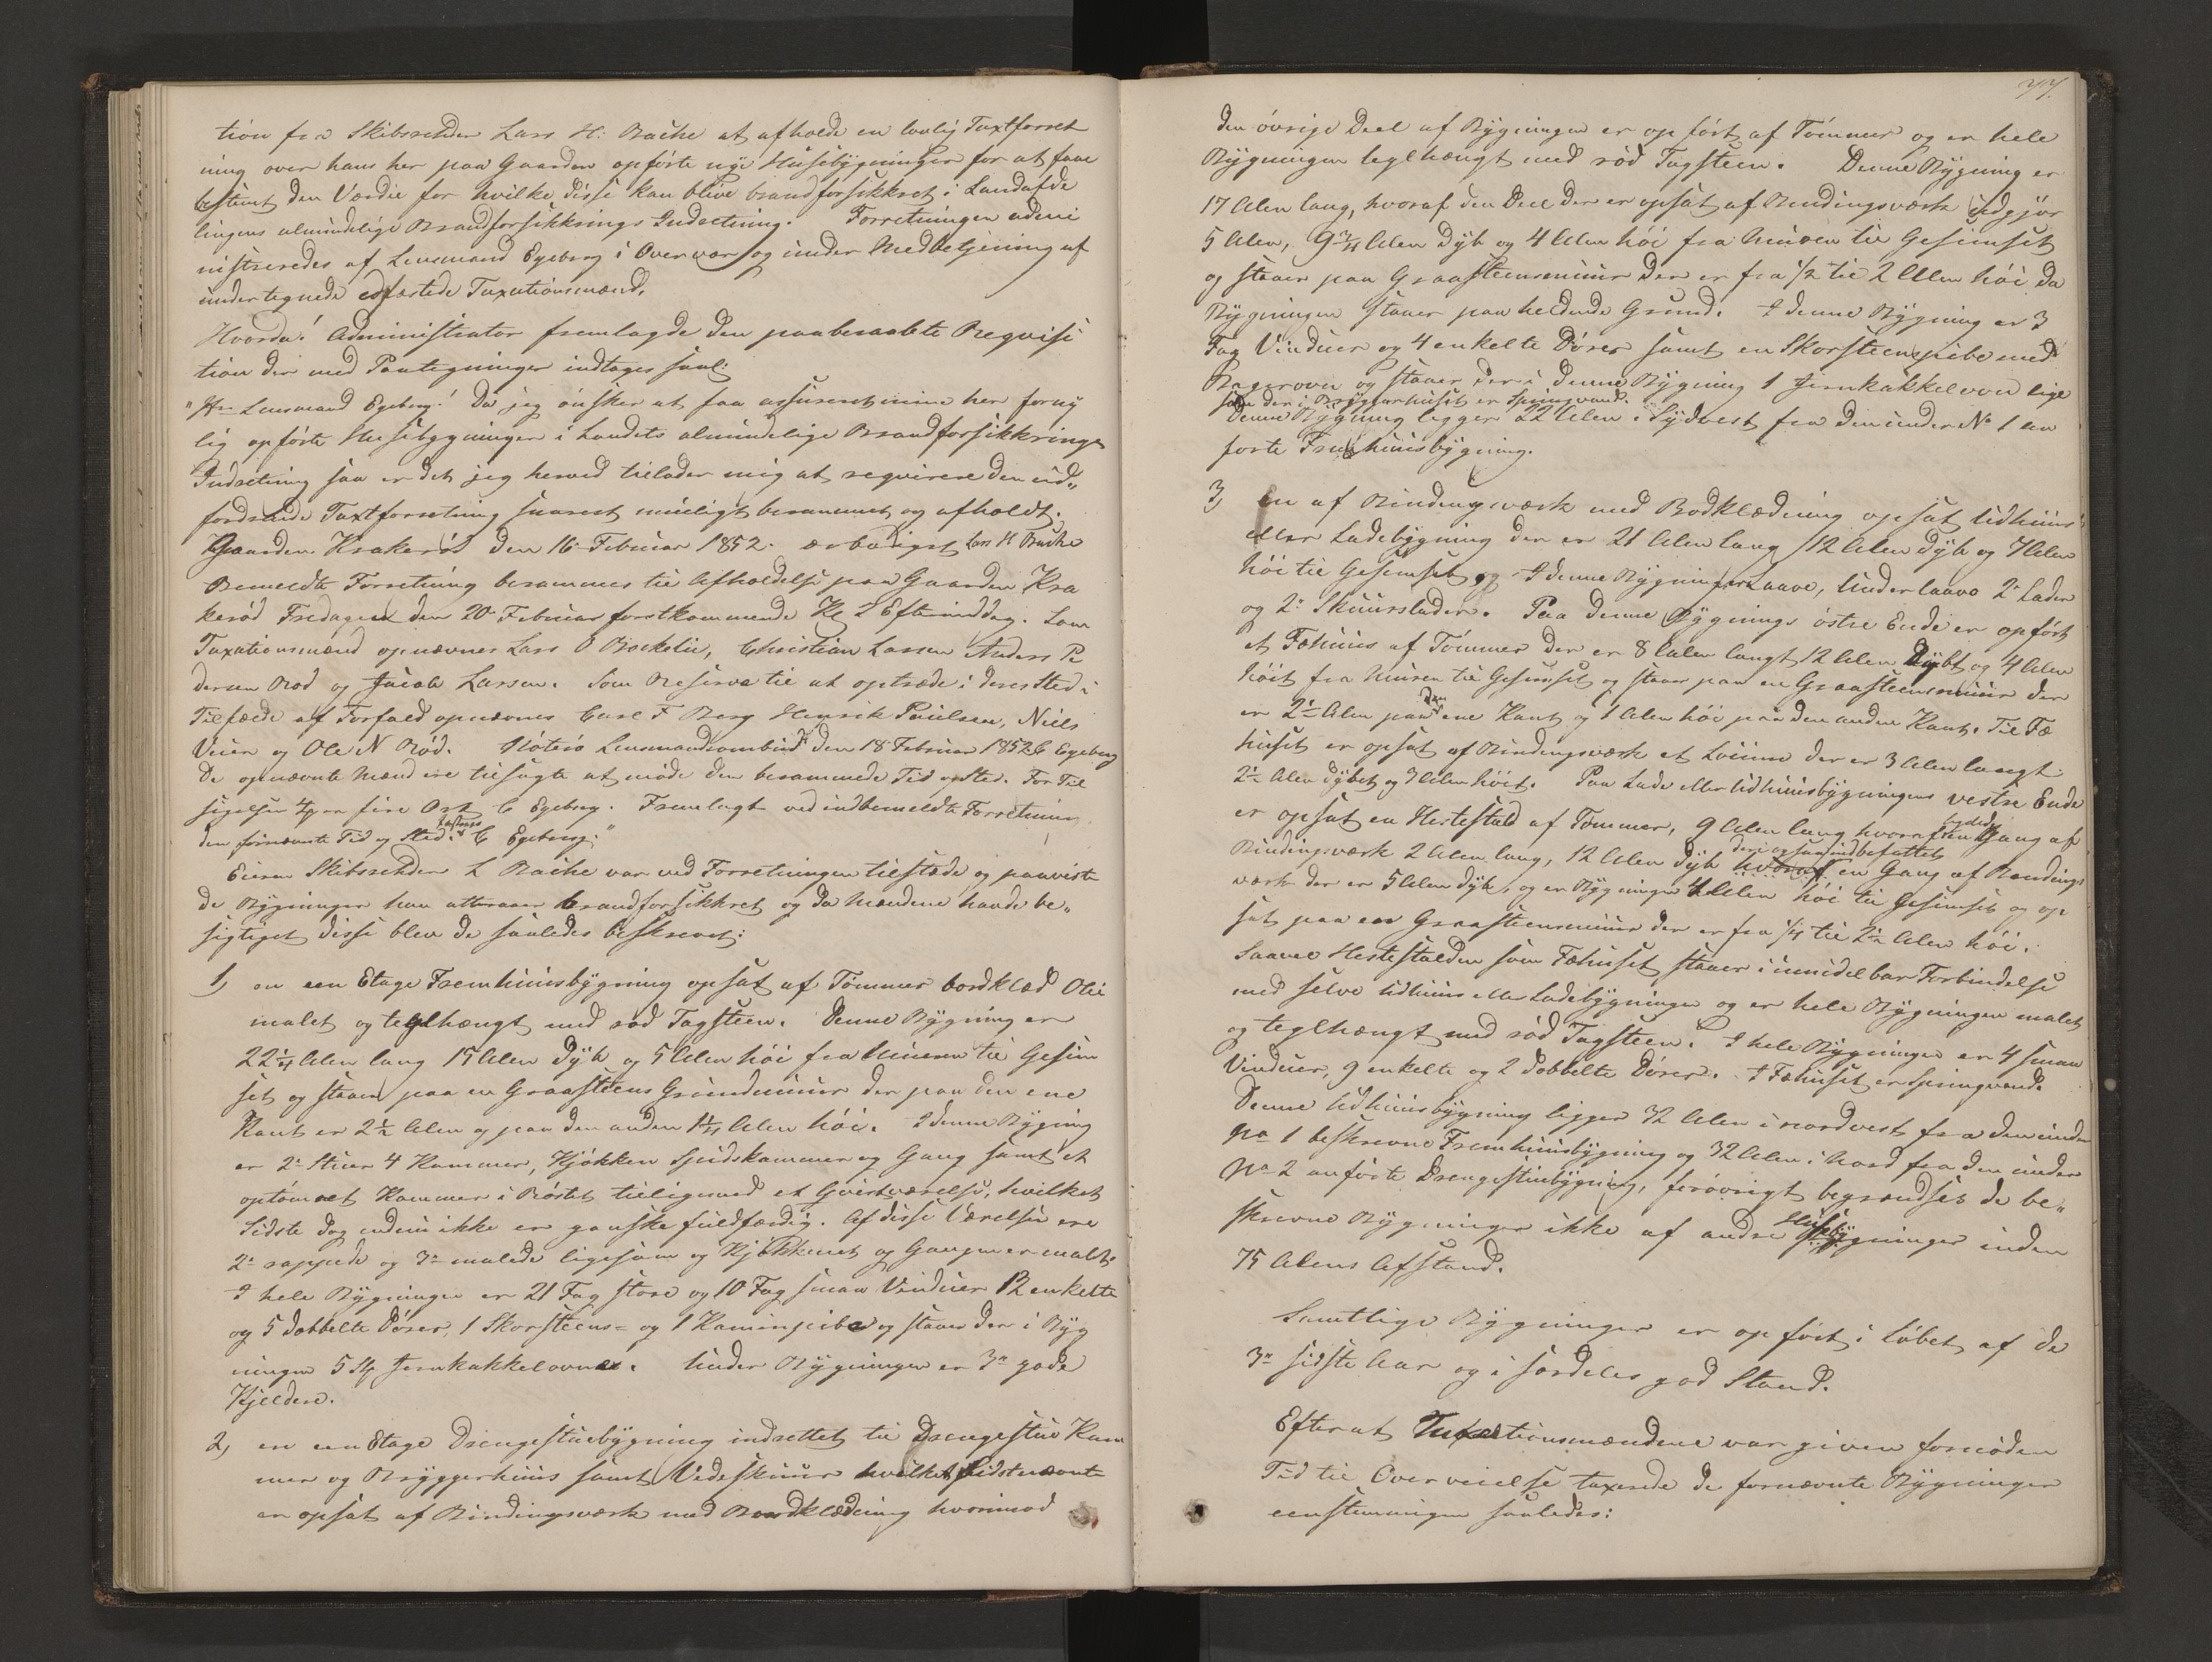 tion fra Skibsrehder Lars H: Bache at afholde en lovlig Taxtforret
ning over hans her paa Gaarden opførte nye Husebygninger for at faae
bestemt den Værdie for hvilke disse kan blive brandforsikkret i Landafde
lingens almindelige Brandforsikkrings Indretning. Forretningen admi
nistreredes af Lensmand Egeberg i Overvær og under Medbetjening af
undertegnede edfæstede Taxationsmænd.
Hvorda! Administrator fremlagde den paaberaabte Reqvisi
tion der med Paategninger indtages saal:
"Hr Lensmand Egeberg! Da jeg ønsker at faa assureret mine her forny
lig opførte Husebygninger i Landets almindelige Brandforsikkrings
Indretning saa er det jeg herved tillader mig at reqvirere den ud„
fordrende Taxtforretning snarest mueligt berammet og afholdt.
Gaarden Krakerød den 16 Februar 1852. ærbødigst Lars H Bache
Bemeldte Forretning berammes til Afholdelse paa Gaarden Kra
kerød Fredagen den 20 Februar førstkommende Kl 2 Eftermiddag. Som
Taxationsmænd opnævnes Lars O Borkelie, Christian Larsen Anders Pe
dersen Rød og Jacob Larsen. Som Reserve til at optræde i deres Sted i
Tilfælde af Forfald opnævnes Carl F Berg Henrik Paulsen, Niels
Veien og Ole N Rød. Lensmandsombud den 18 Februar 1852 C Egeberg
De opnævnte Mænd ere tilsagte at møde den berammede Tid og Sted. For Til
sigelser 4 er fire Ort C Egeberg. Fremlagt ved indbemeldte Forretning
den fornævnte Tid og Sted. C Egeberg."
Eieren Skibsrehder L Bache var ved Forretningen tilstæde og paaviste
de Bygninger han attraaer brandforsikkret og da Mændene havde be„
sigtiget disse blev de saaledes beskrevet:
1, en een Etage Fremhuusbygning opsat af Tømmer bordklæd Olie
malet og teglhængt med rød Tagsteen. Denne Bygning er
22 1/4 Alen lang 15 Alen dyb og 5 Alen høi fra Muuren til Gesim
set og staaer paa en Graasteens Grundmuur der paa den ene
Kant er 2 1/2 Alen og paa den anden 1 1/4 Alen høi. I denne Bygning
er 2 Stuer 4 Kammer, Kjøkken Spiskammer og Gang samt et
optømret Kammer i Røstet tilligemed et Gjestværelse, hvilket
Sidste dog endnu ikke er ganske fuldfærdig. Af disse Værelser ere
2 rappede og 3 malede ligesom og Kjøkkenet og Gangen er malt.
I hele Bygningen er 21 Fag store og 10 Fag smaa Vinduer 12 enkelte
og 5 dobbelte Dører, 1 Skorsteens= og 1 Kaminpibe og staaer der i Byg
ningen 5 St Jernkakkelovne. Under Bygningen er 3 gode
Kjeldere.
2, en een Etage Drengestuebygning indrettet til Drengestue Kam
mer og Bryggerhuus samt Vedeskuur hvilket sidstnævnte
er opsat af Bindingsværk med Bordklædning hvorimod
77.
den øvrige Deel af Bygningen er opført af Tømmer og er hele
Bygningen teglhængt med rød Tagsteen. Denne Bygning er
17 Alen lang, hvoraf den Deel der er opsat af Bindingsværk udgjør
5 Alen, 9 3/4 Alen dyb og 4 Alen høi fra Muuren til Gesimset
og staaer paa Graasteensmuur der er fra 1/2 til 2 Alen høi da
Bygningen staaer paa heldende Grund. I denne Bygning er 3
Fag Vinduer og 4 enkelte Dører samt en Skorsteenspibe med
Bagerovn og staaer der i denne Bygning 1 Jernkakkelovn lige
som der i Bryggerhuset er Springvand.
Denne Bygning ligger 22 Alen i Sydvest fra den under No 1 an
førte Fremhuusbygning.
3, En af Bindingsværk med Bordklædning opsat Udhuus
eller Ladebygning der er 21 Alen lang 12 Alen dyb og 7 Alen
høi til Gesimset, og I denne Bygning er Laave, Underlaave 2 Lader
og 2 Skuurslader. Paa denne Bygnings østre Ende er opført
et Fæhuus af Tømmer der er 8 Alen langt 12 Alen dybt og 4 Alen
høit fra Muuren til Gesimset og staaer paa en Graasteensmuur der
er 2 1/2 Alen paa den ene Kant og 1 Alen høi paa den anden Kant. Til Fæ
huset er opsat af Bindingsværk et Locum der er 3 Alen langt
2 1/2 Alen dybt og 3 Alen høit. Paa Lade eller Udhuusbygningens vestre Ende
er opsat en Hestestald af Tømmer, 9 Alen lang hvoraf en Gang af
Bindingsværk 2 Alen lang, 12 Alen dyb hvoraf en Gang af Bindings
deri ogsaa indbefattet
værk der er 5 Alen dyb, og er Bygningen 4 Alen høi til Gesimset og op
sat paa en Graasteensmuur der er fra 1/4 til 2 1/2 Alen høi.
Saavel Hestestalden som Fæhuset staaer i umidelbar Forbindelse
med selve Udhuus eller Ladebygningen og er hele Bygningen malet
og teglhængt med rød Tagsteen. I hele Bygningen er 4 smaa
Vinduer, 9 enkelte og 2 dobbelte Dører. I Fæhuset er Springvand.
Denne Udhuusbygning ligger 32 Alen i nordvest fra den under
No 1 beskrevne Fremhuusbygning og 32 Alen i Nord fra den under
No 2 anførte Drengestuebygning, forøvrigt begrændses de be„
skrevne Bygninger ikke af andre Husebygninger inden
75 Alens Afstand.
Samtlige Bygninger er opført i Løbet af de
3 sidste Aar og i særdeles god Stand.
Efterat Taxationsmændene var given fornøden
Tid til Overveielse taxerede de fornævnte Bygninger
eenstemmigen saaledes: